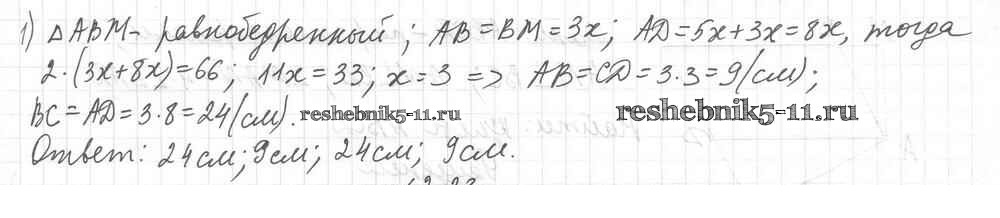 1) △ABM - равнобедренный; AB=BM=3x; AD=5x+3x=8x, тогда
2·(3x+8x)=66; 11x=33; x=3 => AB=CD=3·3=9(см);
BC=AD=3·8=24(см). reshebnik5-11.ru reshebnik5-11.ru
Ответ: 24см; 9см; 24см; 9см.